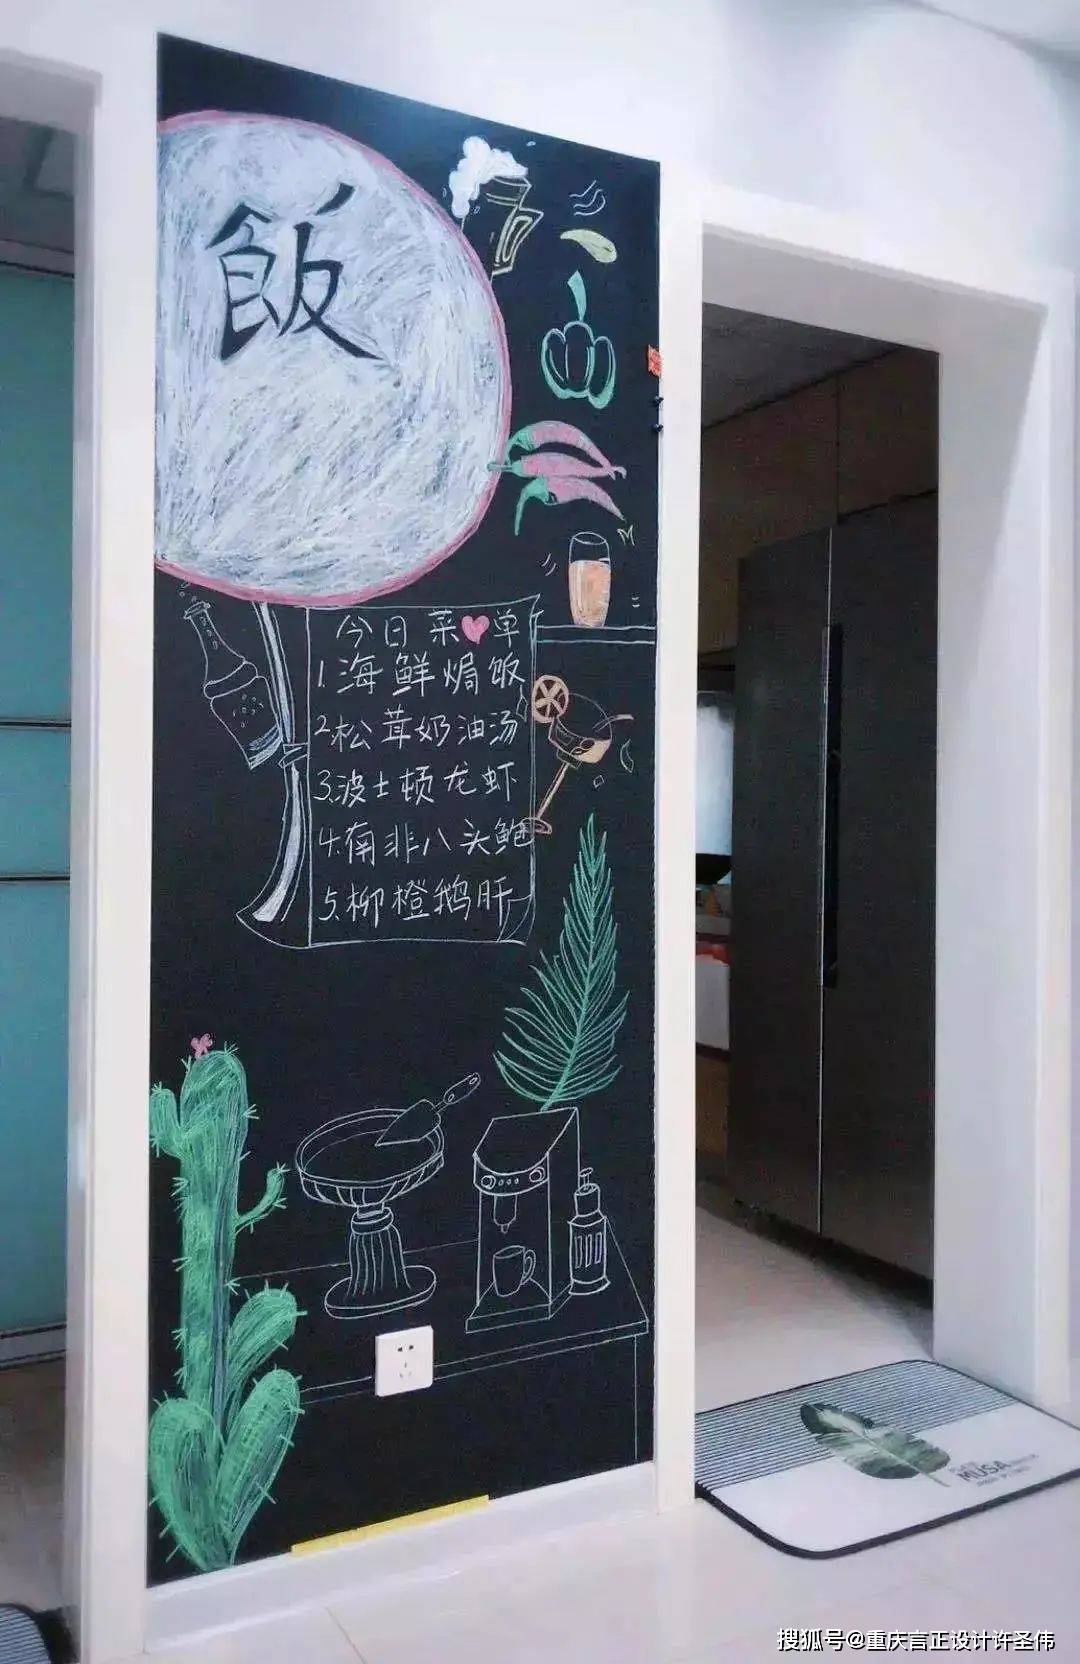 飯
今日菜单
1.海鲜焗饭
2.松茸奶油汤
3.波士顿龙虾
4.南非八头鲍
5.柳橙鹅肝
MUSA
搜狐号@重庆言正设计许圣伟